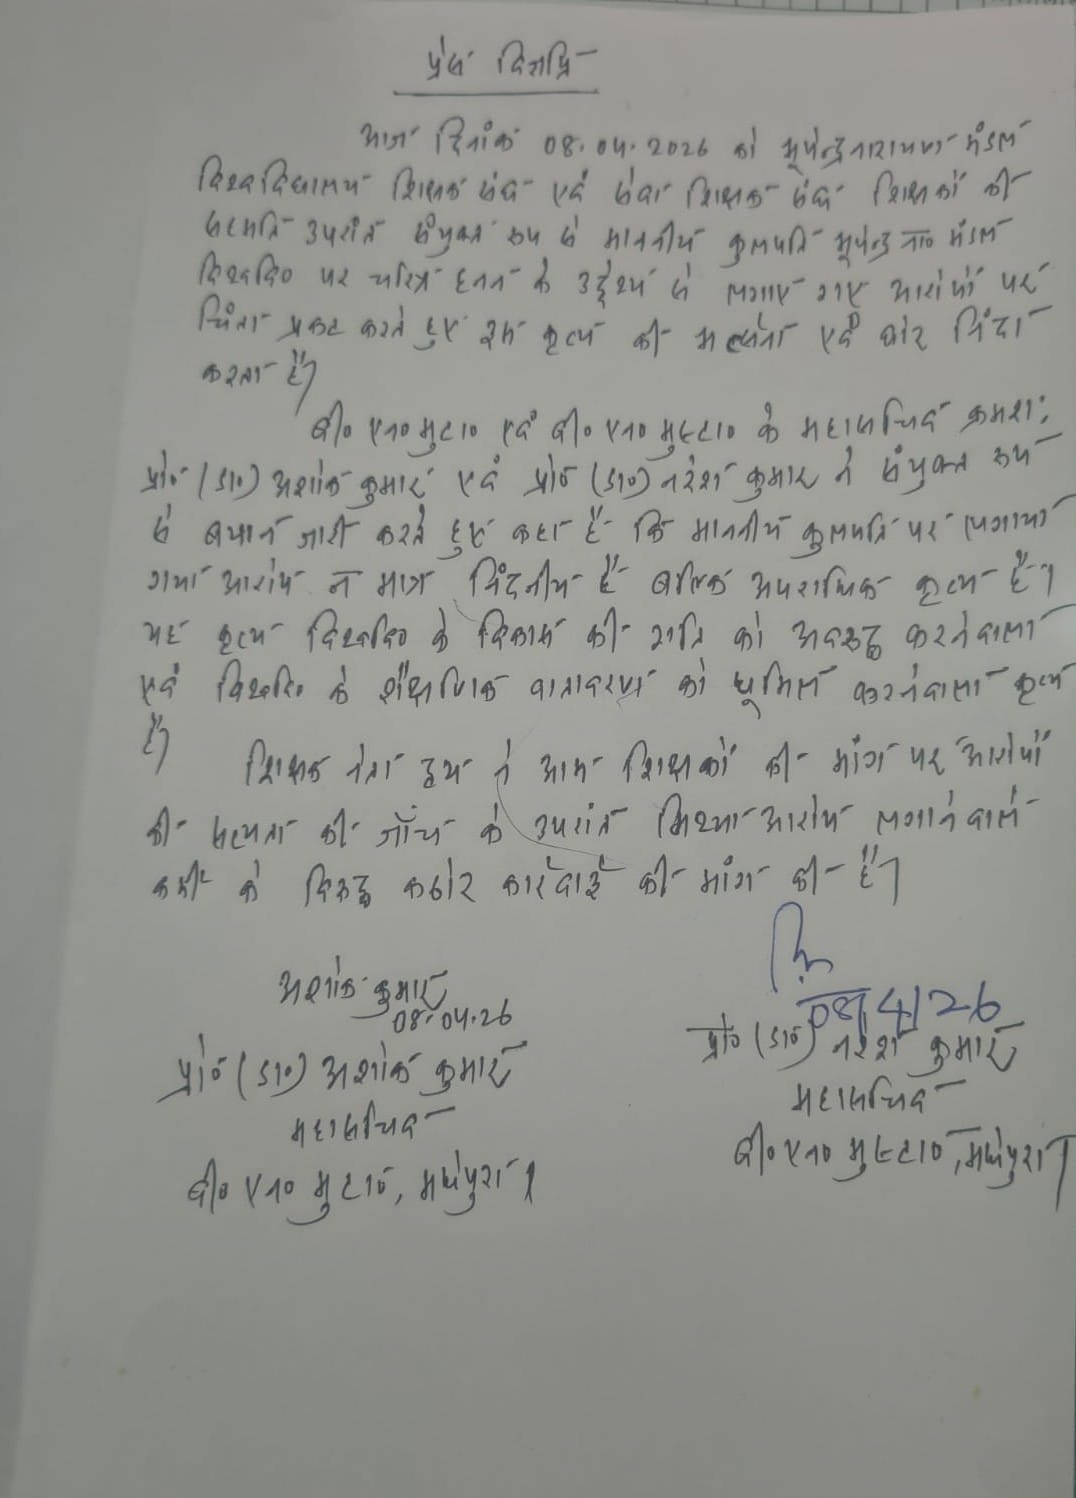 प्रेस विज्ञप्ति
आज दिनांक 08.04.2026 को भूपेन्द्र नारायण मंडल
विश्वविद्यालय शिक्षक संघ एवं सेवा शिक्षक संघ शिक्षकों की
सहमति उपरांत संयुक्त रूप से माननीय कुलपति भूपेन्द्र ना० मंडल
विश्ववि० पर चरित्र हनन के उद्देश्य से लगाए गए आरोपों पर
चिंता प्रकट करते हुए इस कृत्य की भर्त्सना एवं घोर निंदा
करता है।
बी० एन० मुटा० एवं बी० एन० मुस्टा० के महासचिव क्रमशः
प्रो० (डा०) अशोक कुमार एवं प्रो० (डा०) नरेश कुमार ने संयुक्त रूप
से बयान जारी करते हुए कहा है कि माननीय कुलपति पर लगाया
गया आरोप न मात्र निंदनीय है बल्कि अपराधिक कृत्य है।
यह कृत्य विश्ववि० के विकास की गति को अवरुद्ध करनेवाला
एवं विश्ववि० के शैक्षणिक वातावरण को धूमिल करनेवाला कृत्य
है।
शिक्षक नेता द्वय ने आम शिक्षकों की मांग पर आरोपों
की सत्यता की जाँच के उपरांत मिथ्या आरोप लगानेवाले
के विरुद्ध कठोर कार्रवाई की मांग की है।
अशोक कुमार
08.04.26
प्रो० (डा०) अशोक कुमार
महासचिव
बी० एन० मुटा०, मधेपुरा।
08/4/26
प्रो० (डा०) नरेश कुमार
महासचिव
बी० एन० मुस्टा०, मधेपुरा।